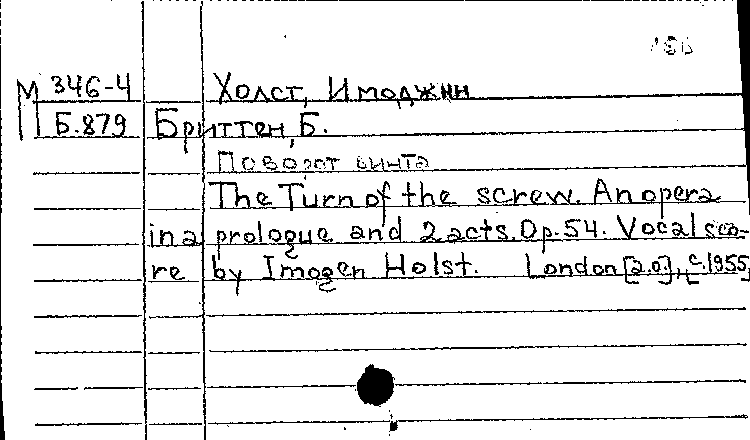 М 346-4 Холст, Имоджин
Б.879 Бриттен, Б.
Поворот винта
The Turn of the screw. An opera
in a prologue and 2 acts. Op. 54. Vocal sco-
re by Imogen Holst. London [a.o.], c. 1955,